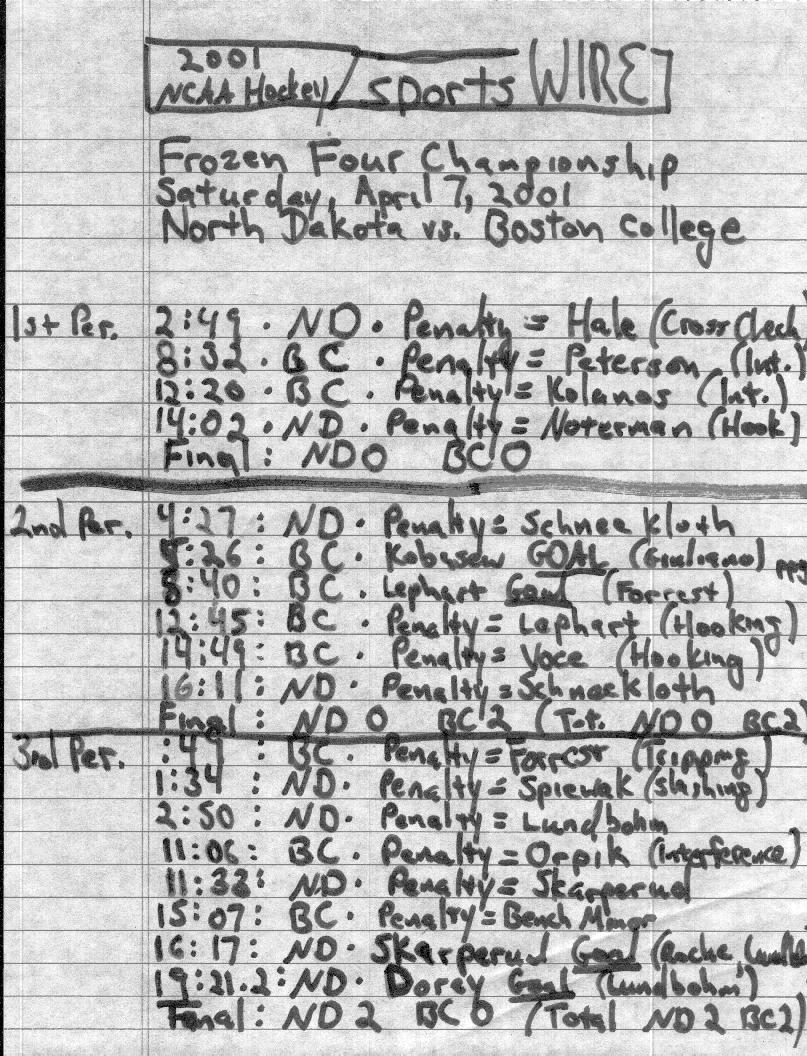 2001
NCAA Hockey / sports WIRE
Frozen Four Championship
Saturday, April 7, 2001
North Dakota vs. Boston college
1st Per. 2:49 · ND · Penalty = Hale (Cross Check)
8:32 · BC · Penalty = Peterson (Int.)
12:20 · BC · Penalty = Kolanos (Int.)
14:02 · ND · Penalty = Noterman (Hook)
Final: ND 0 BC 0
2nd Per. 4:27: ND · Penalty = Schneekloth
5:26: BC · Kobasew GOAL (Giuliano) ppg
8:40: BC · Lephart Goal (Forrest)
12:45: BC · Penalty = Lephart (Hooking)
14:49: BC · Penalty = Voce (Hooking)
16:11: ND · Penalty = Schneekloth
Final: ND 0 BC 2 (Tot. ND 0 BC 2)
3rd Per. :49 : BC · Penalty = Forrest (Tripping)
1:34 : ND · Penalty = Spiewak (slashing)
2:50 : ND · Penalty = Lundbohm
11:06: BC · Penalty = Orpik (interference)
11:38: ND · Penalty = Skarperud
15:07: BC · Penalty = Bench Minor
16:17: ND · Skarperud Goal
19:21.2: ND · Dorey Goal (Lundbohm)
Final: ND 2 BC 0 (Total ND 2 BC 2)